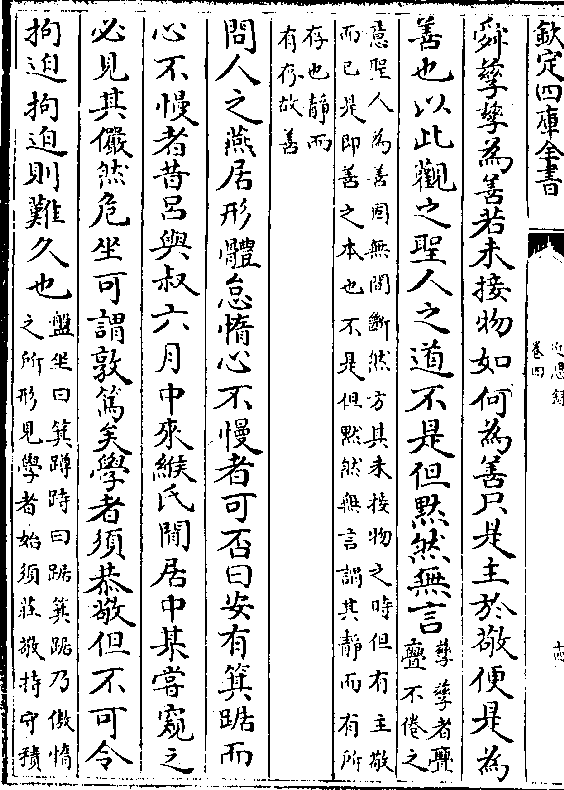 欽定四庫全書
近思録
卷四
舜孳孳為善若未接物如何為善只是主於敬便是為
善也以此觀之聖人之道不是但黙然無言
孳孳者亹
亹不倦之
意聖人為善固無間斷然方其未接物之時但有主敬
而已是即善之本也不是但黙然無言謂其靜而有所
存也靜而
有存故善
問人之燕居形體怠惰心不慢者可否曰安有箕踞而
心不慢者昔吕與叔六月中來緱氏閒居中某嘗窺之
必見其儼然危坐可謂敦篤矣學者須恭敬但不可令
拘迫拘迫則難久也
盤坐曰箕蹲跱曰踞箕踞乃傲惰
之所形見學者始須莊敬持守積